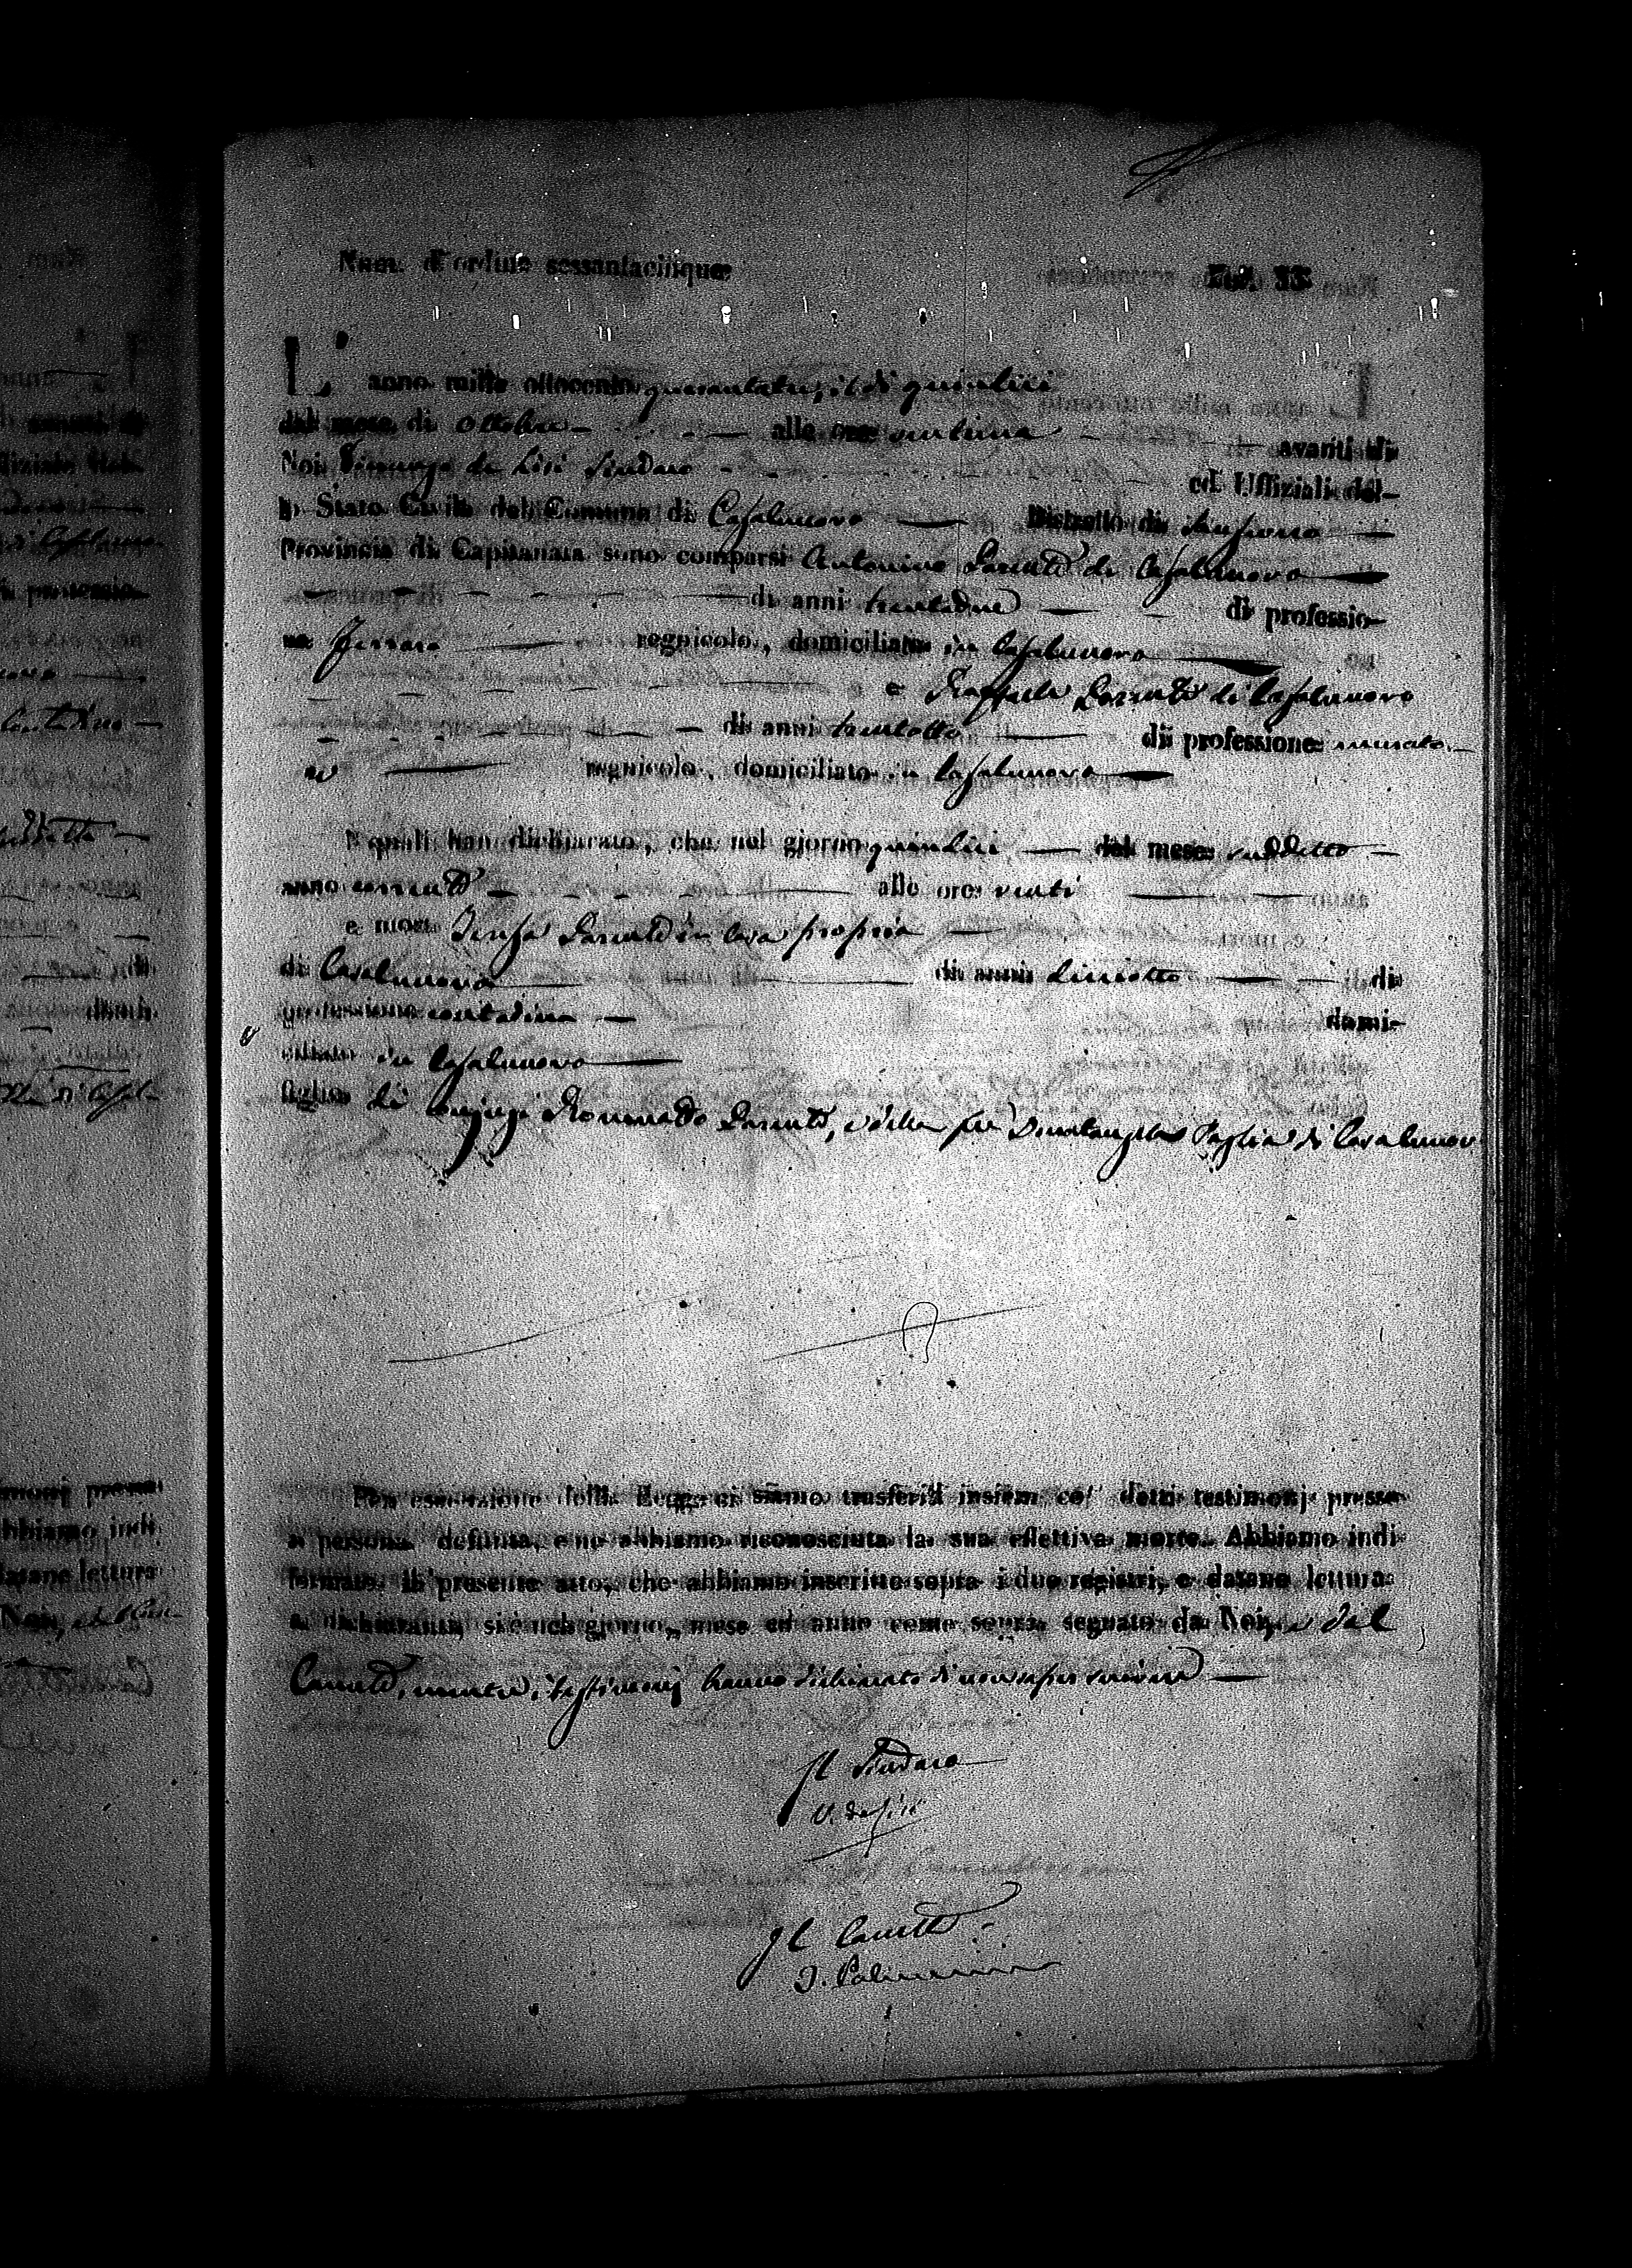 Num. d'ordine sessantacinque
Fol. 33
L'anno mille ottocento quarantatre, il dì quindici
del mese di Ottobre alle ore ventuna avanti di
Noi Vincenzo de Lisi Sindaco ed Uffiziali del-
lo Stato Civile del Comune di Casalnuovo Distretto di Sansevero
Provincia di Capitanata sono comparsi Antonino Parente di Casalnuovo
di anni trentadue di professio-
ne Ferraro regnicolo, domiciliato in Casalnuovo
e Raffaele Parente di Casalnuovo
di anni trentotto di professione murato-
re regnicolo, domiciliato in Casalnuovo
I quali han dichiarato, che nel giorno quindici del mese suddetto
anno corrente alle ore venti
e morta Teresa Parente in casa propria
di Casalnuovo di anni diciotto di
professione contadina domi-
ciliata in Casalnuovo
figlia di coniugi Romualdo Parente, e della fu Donatangela Paglia di Casalnuov
Per esecuzione della Legge ci siamo trasferiti insiem co' detti testimonj presso
a persona defunta, e ne abbiamo riconosciuta la sua effettiva morte. Abbiamo indi
formato il presente atto, che abbiamo inscritto sopra i due registri, e datane lettura
a dichiaranti, si è nel giorno, mese ed anno come sopra segnato da Noi, e dal
Cancell.e, mentre i testimonj hanno dichiarato di non saper scrivere
Il Sindaco
V. de Lisi
Il Cancell.e